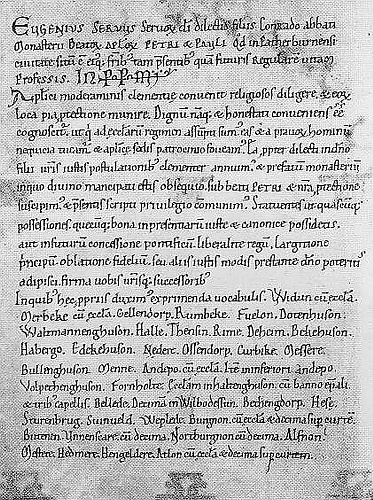 EUGENIUS SERVUS SERVOR̄ di dilectis filiis Conrado abbati
Monasterii BEATOR̄ APL̄OR̄ PETRI & PAULI Qđ in Patherburnensi
civitate sitū ē eiq; frīb' tam p̄sentib' quā futuris Regularē vitam
Professis. IN P̄P̄M̄
Ap̄lici moderaminis clementię convenit religiosos diligere, & eoꝝ
loca pia p̄tectione munire. Dignū nāq; & honestati conveniens ēē
cognoscit̄. ut q̄ ad ęcclaꝝ regimen assūpti sum' eas & a pravoꝝ hominū
nequicia tueam̄. & aplicę sedis patrocinio foveam̄. Ea ꝓpter dilecti in dn̄o
filii urīs iustis postulationib' clementer annuim'. & prefatum monasteriū
in quo divino mancipati estis obsequio. sub beati PETRI & nr̄a ꝓtectione
suscipim'. & p̄sentis scripti privilegio comunim'. Statuentes ut quascūq;
possessiones. quecūq; bona inpresentiarū iuste & canonice possidetis.
aut in futurū concessione pontificū. liberalitate regū. largitione
p̄ncipū oblatione fideliū. seu aliis iustis modis prestante dn̄o poteritis
adipisci. firma vobis urīsq; successorib'
In quib' hęc ꝓpriis duxim' exprimenda vocabulis. Widun cū ęccła.
Merbeke cū ęccła. Gellendorp. Rumbeke. Fuelon. Dotenhusun.
Waltmannenghusun. Halle. Thensin. Rime. Deheim. Bekehusun.
Habergo. Edekehusun. Nedere. Ossendorp. Curbike. Messere.
Bullinghusun. Menne. Andepo. cū ęccła. Ite in inferiori andepo.
Volperchenghusun. Fornholte. Ęcclam in haltenghusun. cū banno epali
& trib' capellis. Bellede. Decimā in Wilbodessun. Bechengdorp. Hese.
Sturenbrug. Sunneld. Weplede. Burgnon. cū ęccła & decima sup eurtē.
Buttenen. Ynnenseare. cū decima. Northurgnon cū decima. Alfnon
Mestere. Hodmere. Bengeldere. Atlon cū ęccła & decima sup curtem.